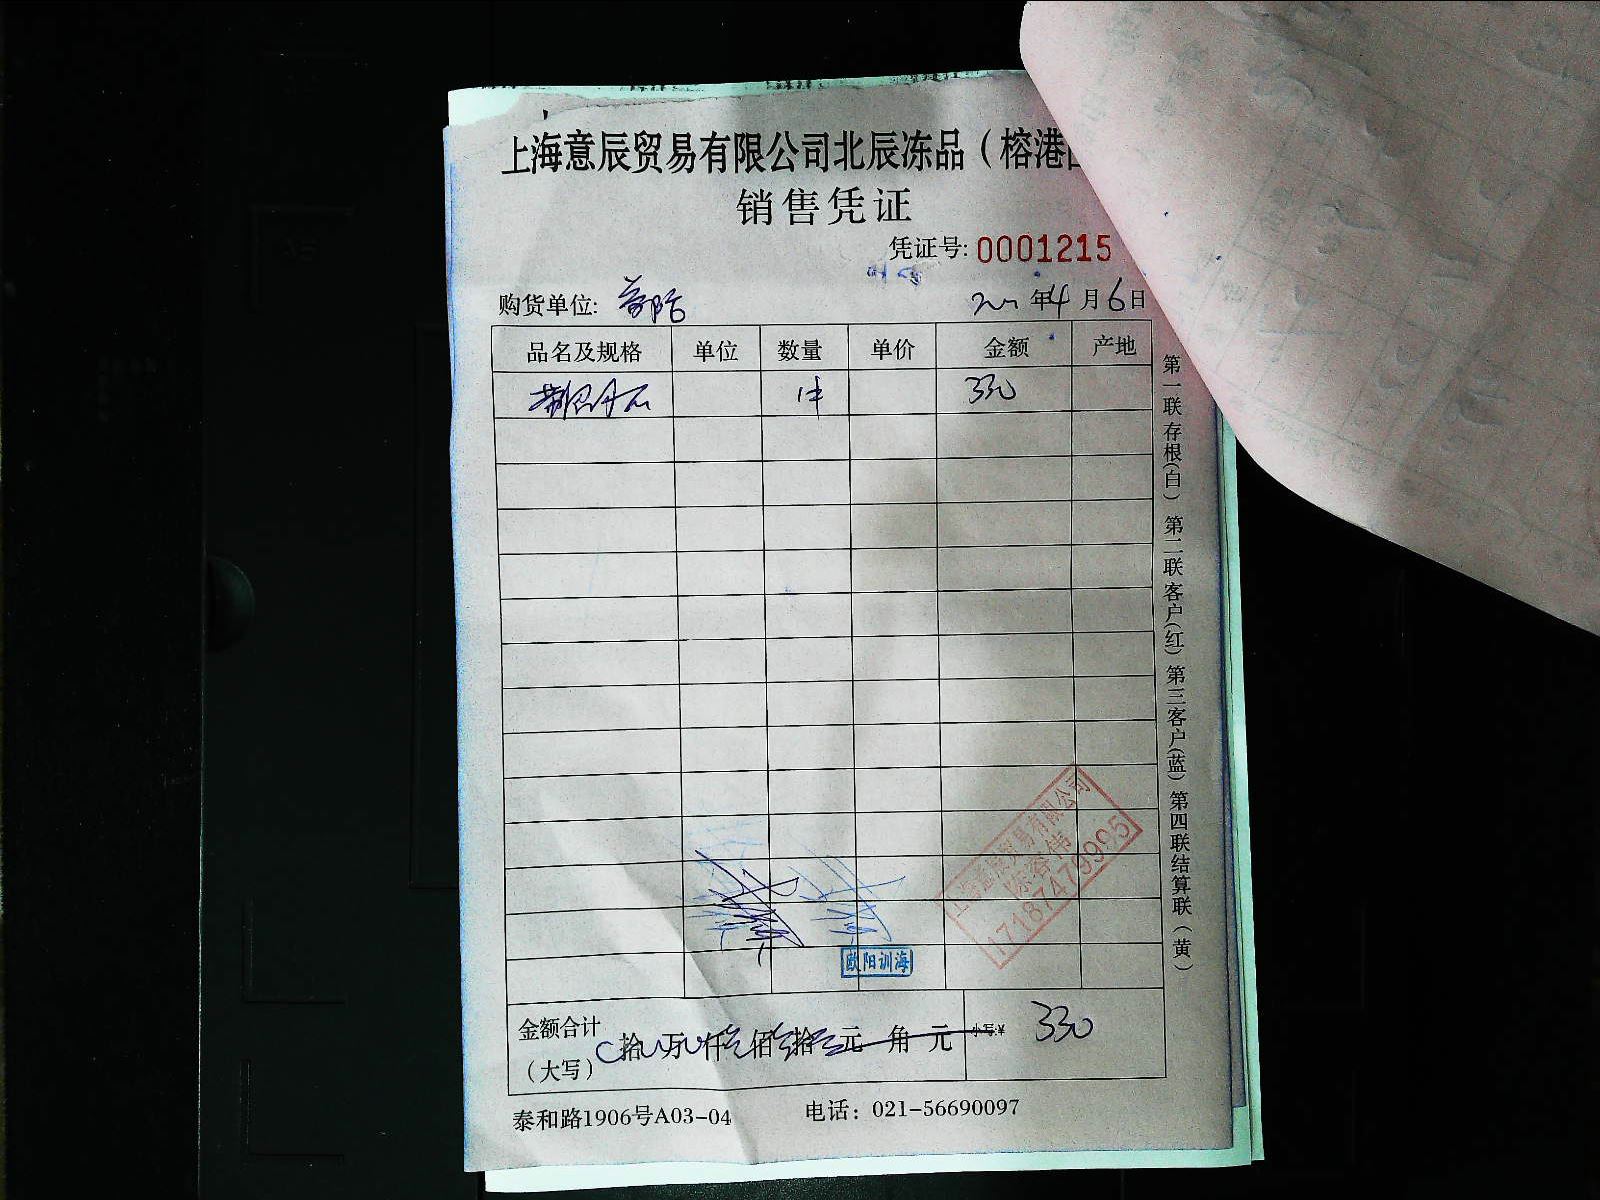 上海意辰贸易有限公司北辰冻品（榕港
销售凭证
凭证号: 0001215
购货单位:
年4月6日
品名及规格 单位 数量 单价 金额 产地
1件 330
第一联存根(白) 第二联客户(红) 第三客户(蓝) 第四联结算联(黄)
上海意辰贸易有限公司
陈春伟
17187479995
欧阳训海
金额合计（大写） 拾 万 仟 佰 拾 元 角 元 小写:¥ 330
泰和路1906号A03-04 电话：021-56690097